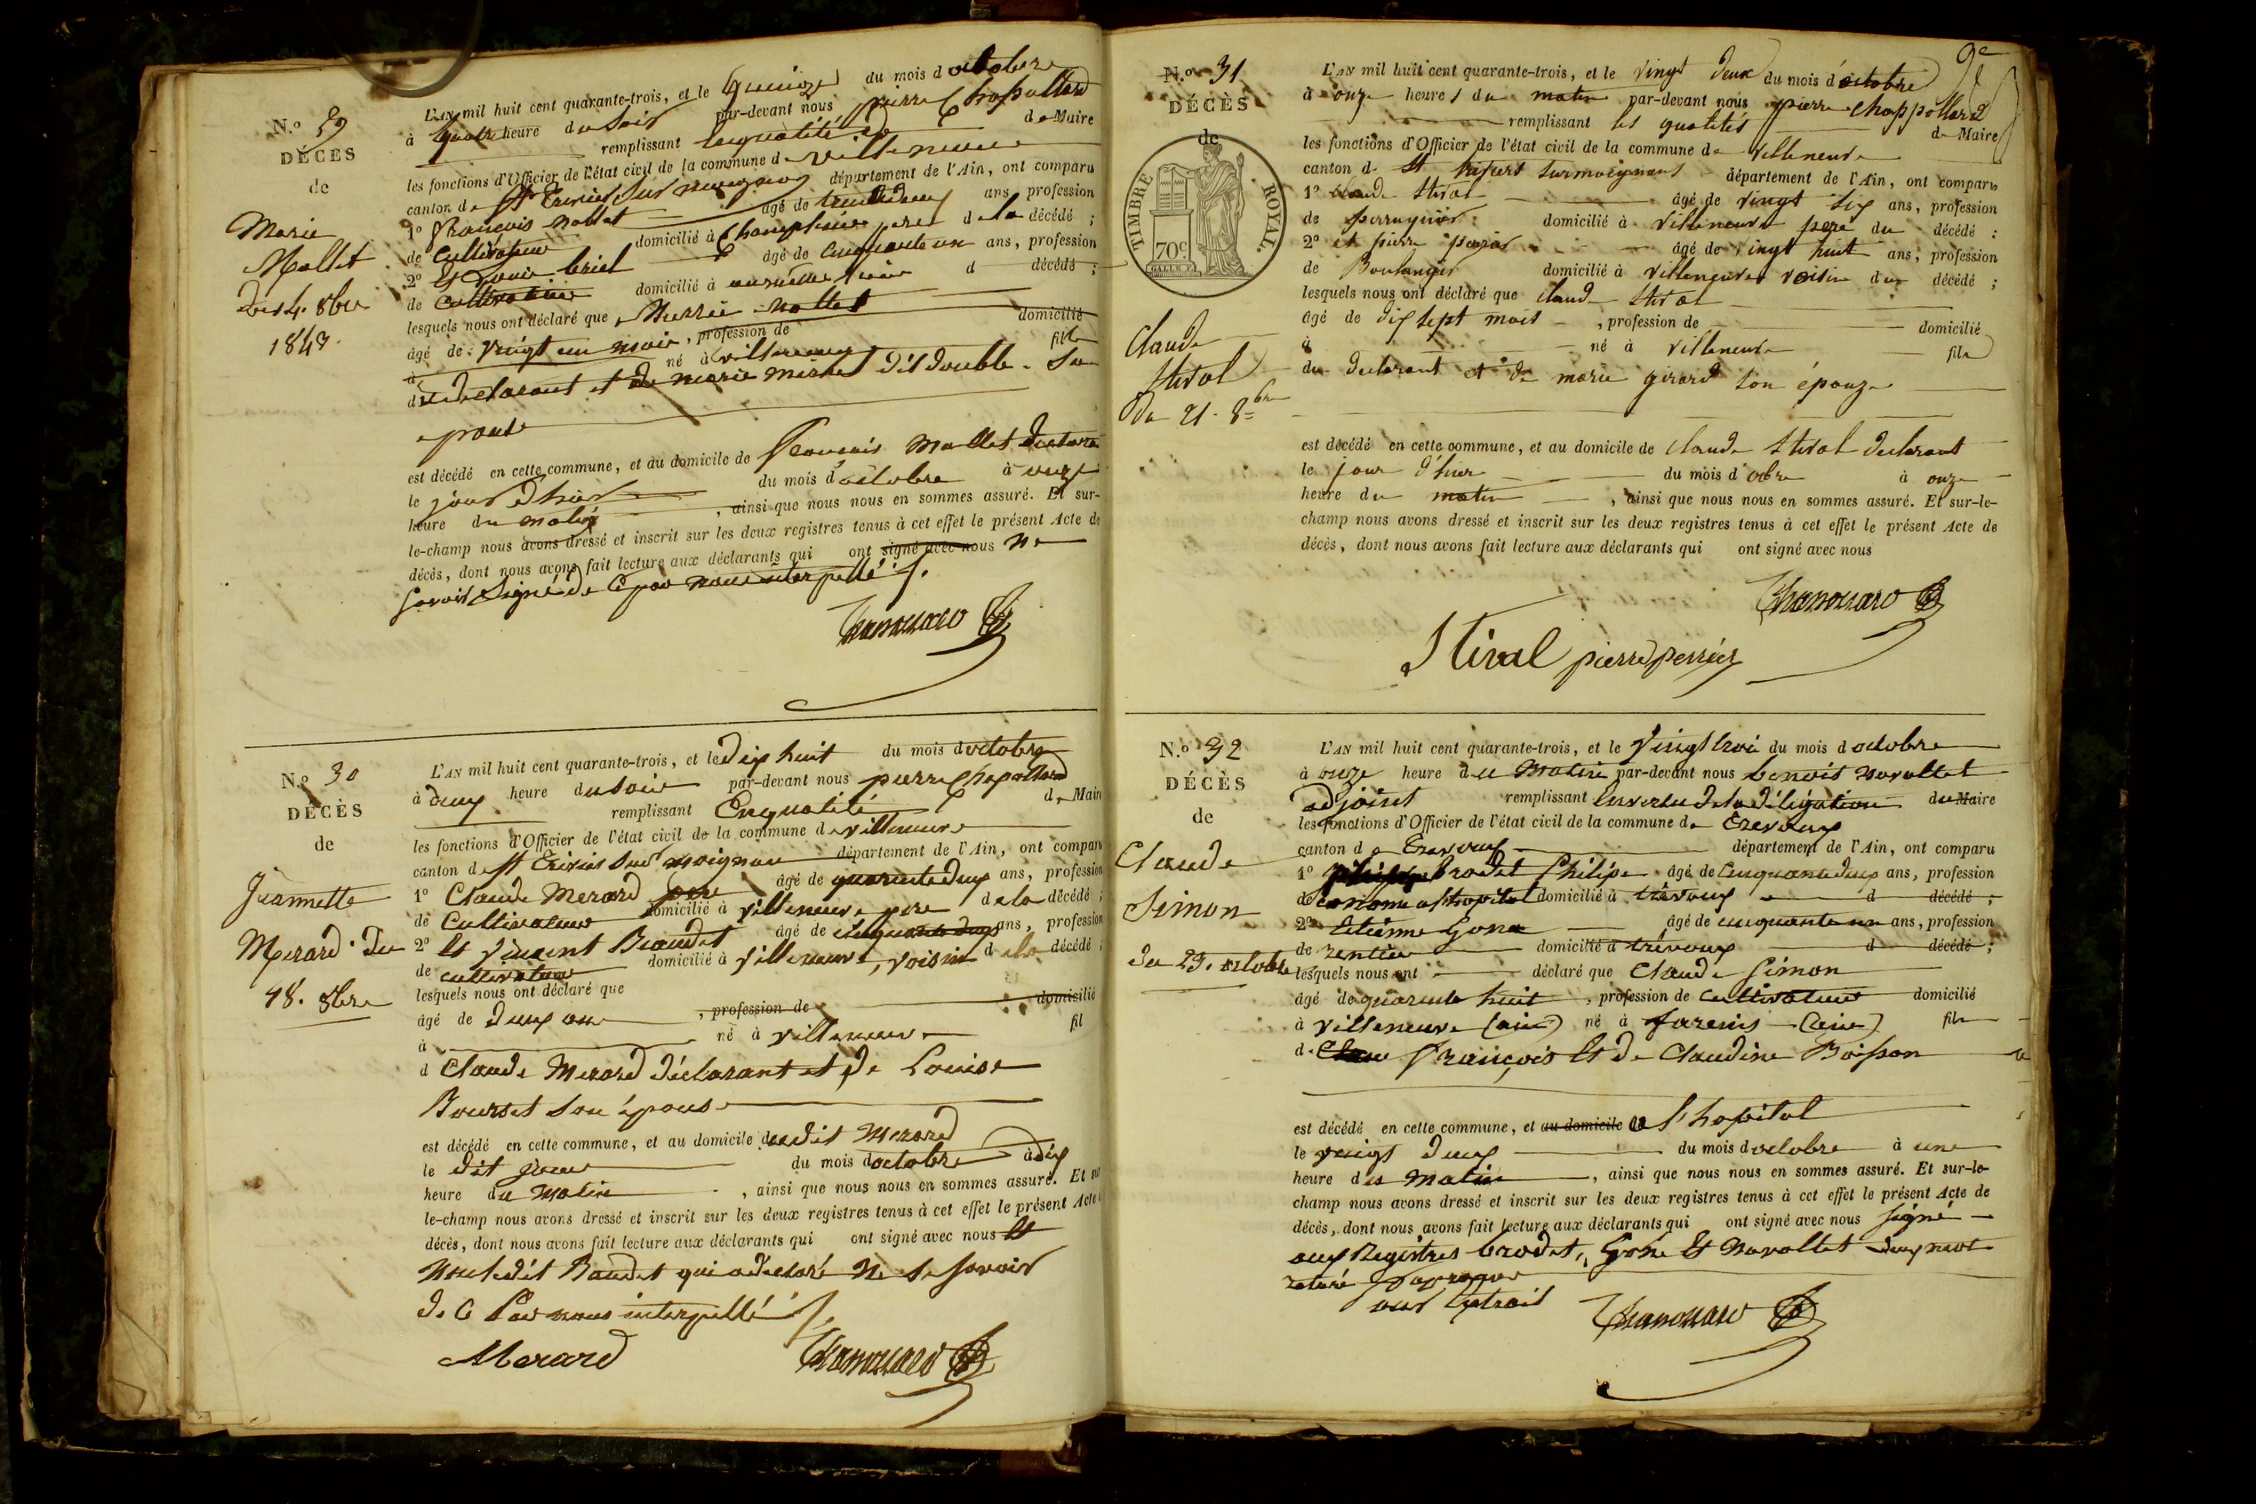 N.º 29
DÉCÈS
de
Marie
Mollet
du 14. 8bre
1843.
L'AN mil huit cent quarante-trois, et le quinze du mois d octobre
à quatre heure du soir par-devant nous pierre Chapollard
remplissant en qualité de Maire
les fonctions d'Officier de l'état civil de la commune de villeneuve
canton de St Trivier sur moignans département de l'Ain, ont comparu
1º françois mollet âgé de trente deux ans, profession
de Cultivateur domicilié à Champlein pere de la décédé ;
2º Et Louis briel âgé de cinquante un ans, profession
de cultivateur domicilié à voisin d décédé ;
lesquels nous ont déclaré que Marie mollet
âgé de vingt un mois, profession de domicilié
à né à villeneuve fille
du déclarant et de marie dit double. Son
epouse
est décédé en cette commune, et au domicile de François Mollet declarant
le jour d'hier du mois d'octobre à onze
heure du matin, ainsi que nous nous en sommes assuré. Et sur-
le-champ nous avons dressé et inscrit sur les deux registres tenus à cet effet le présent Acte de
décès, dont nous avons fait lecture aux déclarants qui ont signé avec nous ne
savoir signé de ce par nous interpellé.
N.º 30
DÉCÈS
de
Jeannette
Merard. du
18. 8bre
L'AN mil huit cent quarante-trois, et le dix huit du mois d octobre
à deux heure du soir par-devant nous pierre Chapollard
remplissant En qualité de Maire
les fonctions d'Officier de l'état civil de la commune de villeneuve
canton de St Trivier sur moignans département de l'Ain, ont comparu
1º Claude Merard âgé de quarante deux ans, profession
de Cultivateur domicilié à villeneuve pere de la décédé ;
2º Et vincent Baudet âgé de cinquante deux ans, profession
de cultivateur domicilié à villeneuve, voisin de la décédé ;
lesquels nous ont déclaré que
âgé de deux ans, profession de domicilié
à né à villeneuve fil
d Claude Merard déclarant et de Louise
Bourset son épouse
est décédé en cette commune, et au domicile dudit Merard
le dit jour du mois d octobre à dix
heure du Matin, ainsi que nous nous en sommes assuré. Et sur
le-champ nous avons dressé et inscrit sur les deux registres tenus à cet effet le présent Acte
décès, dont nous avons fait lecture aux déclarants qui ont signé avec nous et
non ledit Baudet qui a déclaré ne le savoir
de ce Par nous interpellé
Merard
9e
N.º 31
DÉCÈS
de
TIMBRE ROYAL.
70c
Claude
Stival
du 21. 8bre
L'AN mil huit cent quarante-trois, et le vingt deux du mois d'octobre
à onze heures du matin par-devant nous pierre chappollard
remplissant les qualités de Maire
les fonctions d'Officier de l'état civil de la commune de villeneuve
canton de St département de l'Ain, ont comparu
1º claude Stival âgé de vingt six ans, profession
de perruquier domicilié à villeneuve pere du décédé :
2º et pierre perrier âgé de vingt huit ans, profession
de Boulanger domicilié à villeneuve voisin du décédé ;
lesquels nous ont déclaré que claude Stival
âgé de dix sept mois, profession de domicilié
à né à villeneuve fils
du declarant et de marie girard son épouze
est décédé en cette commune, et au domicile de claude Stival declarant
le jour d'hier du mois d'octobre à onze
heure du matin, ainsi que nous nous en sommes assuré. Et sur-le-
champ nous avons dressé et inscrit sur les deux registres tenus à cet effet le présent Acte de
décès, dont nous avons fait lecture aux déclarants qui ont signé avec nous
Stival pierre perrier
N.º 32
DÉCÈS
de
Claude
Simon
du 23. octobre
L'AN mil huit cent quarante-trois, et le vingt trois du mois d octobre
à onze heure du Matin par-devant nous benoit Navallet
adjoint remplissant En vertu de la délégation du Maire
les fonctions d'Officier de l'état civil de la commune de Trevoux
canton de Trevoux département de l'Ain, ont comparu
1º brodet Philipe âgé de cinquante deux ans, profession
de économe à l'hopital domicilié à trévoux d décédé ;
2º Etienne Gona âgé de cinquante un ans, profession
de rentier domicilié à trévoux d décédé ;
lesquels nous ont déclaré que Claude Simon
âgé de quarante huit, profession de cultivateur domicilié
à villeneuve (ain) né à fareins (ain) fils
de François Et de Claudine Boisson
est décédé en cette commune, et au domicile à l'hopital
le vingt deux du mois d octobre à une
heure du matin, ainsi que nous nous en sommes assuré. Et sur-le-
champ nous avons dressé et inscrit sur les deux registres tenus à cet effet le présent Acte de
décès, dont nous avons fait lecture aux déclarants qui ont signé avec nous signé
aux Registres brodet, Gona Et Navallet deux mots
pour Extrait